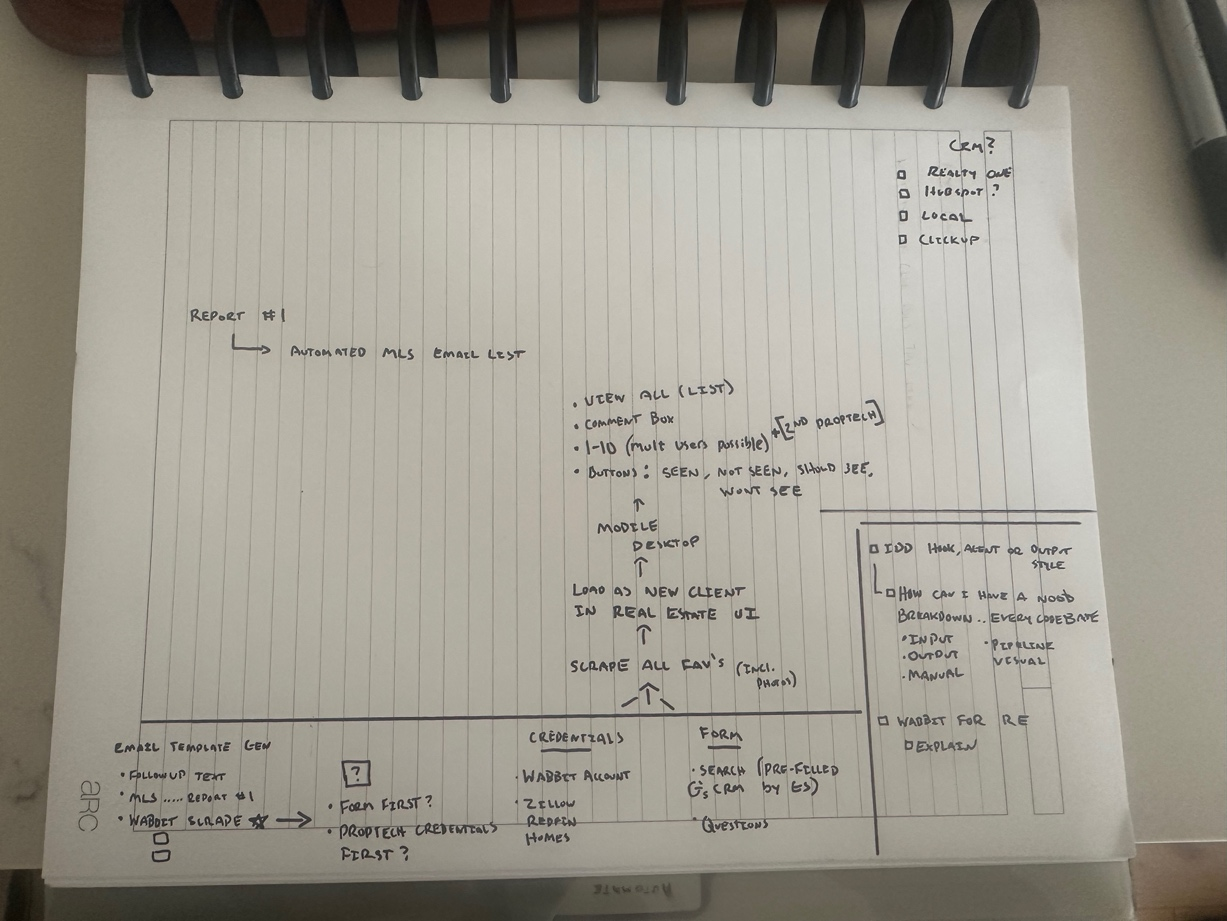 CRM?
REALTY ONE
HUBSPOT ?
LOCAL
CLICKUP
REPORT #1
AUTOMATED MLS EMAIL LIST
• VIEW ALL (LIST)
• COMMENT BOX
• 1-10 (mult users possible) + [2ND PROPTECH]
• BUTTONS: SEEN, NOT SEEN, SHOULD SEE,
WONT SEE
MOBILE
DESKTOP
LOAD AS NEW CLIENT
IN REAL ESTATE UI
SCRAPE ALL FAV'S (INCL.
PHOTOS)
HOOK, AGENT OR OUTPUT
STYLE
HOW CAN I HAVE A NOOB
BREAKDOWN.. EVERY CODEBASE
• INPUT
• OUTPUT
• MANUAL
• PIPELINE
VISUAL
WABBIT FOR RE
EXPLAIN
EMAIL TEMPLATE GEN
• FOLLOWUP TEXT
• MLS ..... REPORT #1
• WABBIT SCRAPE
?
• FORM FIRST?
• PROPTECH CREDENTIALS
FIRST?
CREDENTIALS
• WABBIT ACCOUNT
• ZILLOW
REDFIN
HOMES
FORM
• SEARCH (PRE-FILLED
CRM by
• QUESTIONS
arc
AUTOMATE